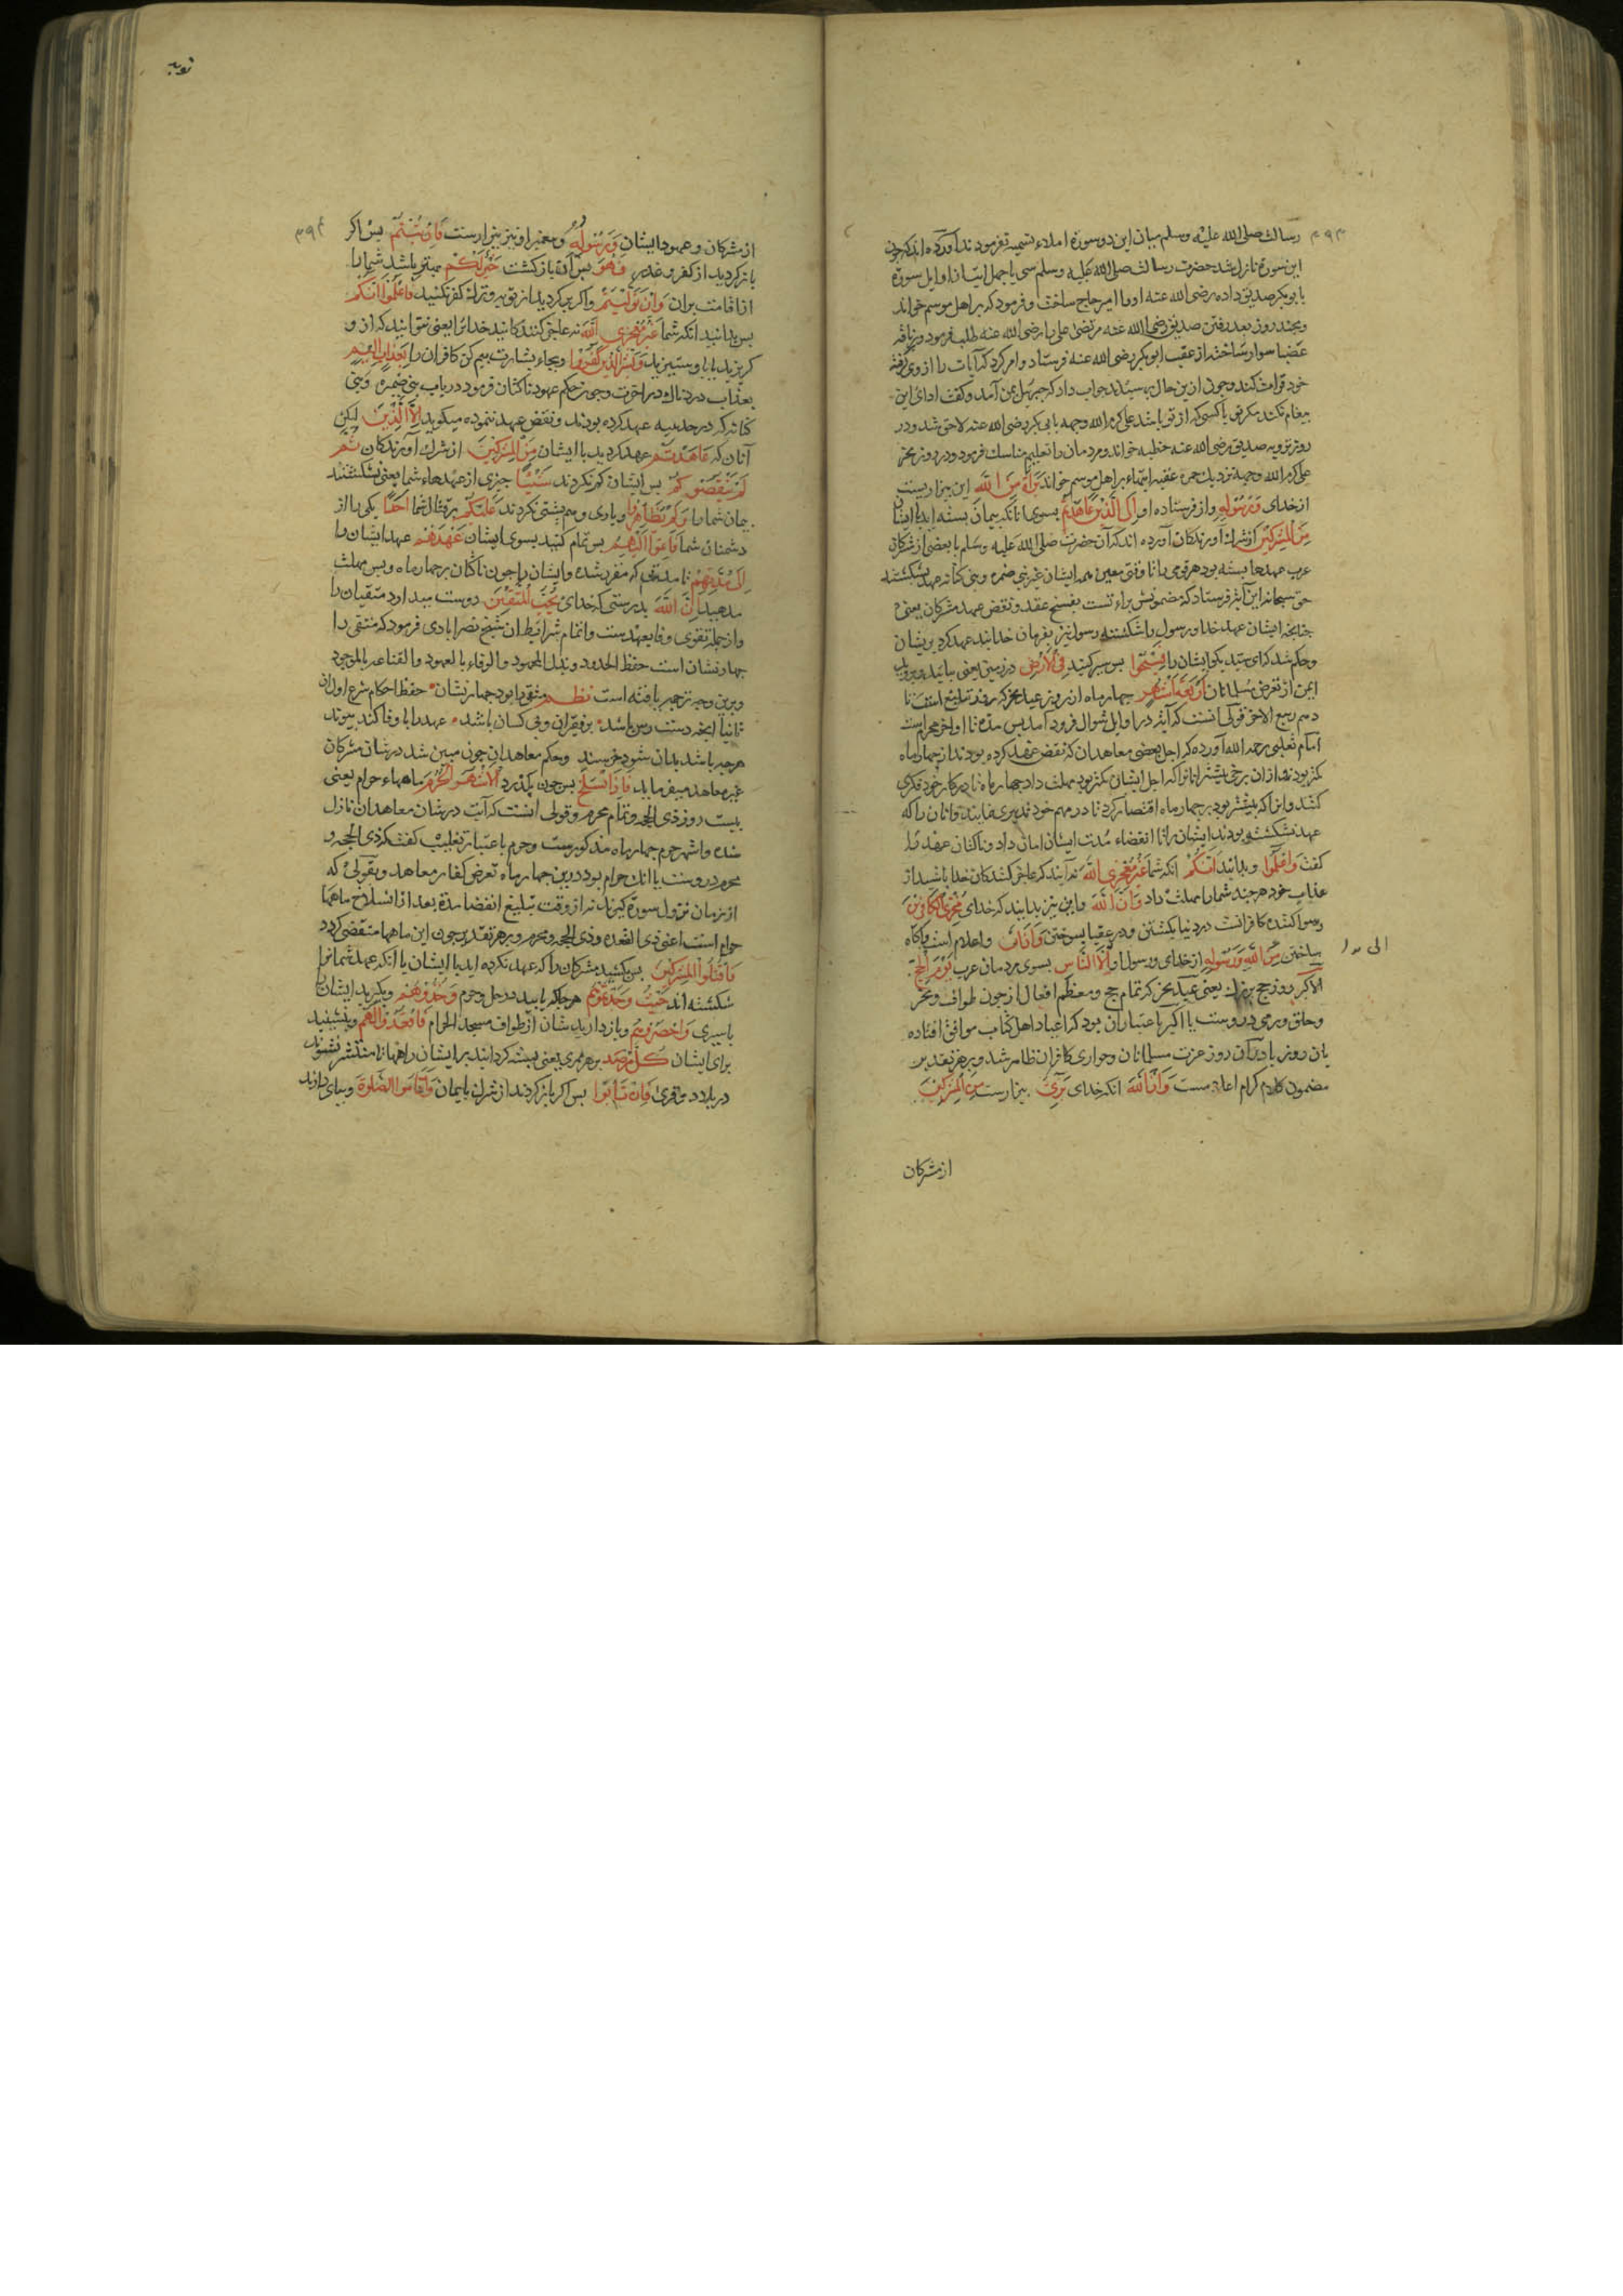 ۳۹۳
رسالت صلی الله علیه وسلم میان این دو سوره املاء تسمیه نفرمودند آورده اند که چون
این سورة نازل شد حضرت رسالت صلی الله علیه وسلم سی یا چهل ایت از اوایل سورة
بابوبکر صدیق داده رضی الله عنه اورا امیر حاج ساخت و فرمود که بر اهل موسم خواند
وبچند روز بعد رفتن صدیق رضی الله عنه مرتضی علی را رضی الله عنه طلب فرمود و بر ناقه
عضبا سوار ساخته از عقب ابوبکر رضی الله عنه فرستاد و امر کرد که آیات را از وی گرفته
خود قرائت کند وچون ازین حال پرسیدند جواب داد که جبرئیل بمن آمد و کفت ادای این
پیغام نکند مکر تو یا کسی که از تو باشد علی کرم الله وجهه بابی بکر رضی الله عنه لاحق شد و در
روز ترویه صدیق رضی الله عنه خطبه خواند و مردمان را تعلیم مناسک فرمود و در روز نحر
علی کرم الله وجهه نزدیک جمره عقبه ایتها بر اهل موسم خواند براءة من الله این بیزاریست
از خدای ورسوله و از فرستاده او الی الذین عاهدتم بسوی آنانکه پیمان بسته اید با ایشان
من المشرکین از شرک آورندکان آورده اند که آن حضرت صلی الله علیه وسلم با بعضی از مشرکان
عرب عهدها بسته بود هر قومی را تا وقتی معین همه ایشان غیر بنی ضمره وبنی کنانه عهد بشکستند
حق سبحانه این آیة فرستاد که مضمونش براءتست بفسخ عقد و نقض عهد مشرکان یعنی
چنانچه ایشان عهد خدا ورسول را شکستند رسول نیز بفرمان خدا نبذ عهد کرد بریشان
وحکم شد که ای سید بکو ایشان را فسیحوا پس سیر کنید فی الارض در زمین یعنی بیائید و بروید
ایمن از تعرض مسلمانان اربعة اشهر چهار ماه از روز عید نحر که روز تبلیغ است تا
دهم ربیع الاخر قولی آنست که آیة در اوایل شوال فرود آمد پس مدة تا اواخر محرم است
امام ثعلبی رحمه الله آورده که اجل بعضی معاهدان که نقض عهد کرده بودند از چهار ماه
کمتر بود و ازان برخی بیشتر انانرا که اجل ایشان کمتر بود مهلت داد چهار ماه تا در کار خود فکری
کنند وانرا که بیشتر بود بر چهار ماه اقتصار کرد تا در مهم خود تدبیری نمایند و انان را که
عهد نشکسته بودند ایشان را تا انقضاء مدت ایشان امان داد و ناکثان عهد را
کفت واعلموا و بدانید انکم انکه شما غیر معجزی الله نه آنید که عاجز کنندکان خدا باشید از
عذاب خود هرچند شما را مهلت داد وان الله واین نیز بدانید که خدای مخزی الکافرین
رسوا کننده کافرانست در دنیا بکشتن ودر عقبا بسوختن واذان واعلام است واکاه
ساختن من الله ورسوله از خدای ورسول او الی الناس بسوی مردمان عرب یوم الحج
الاکبر روز حج بزرک یعنی عید نحر که تمام حج ومعظم افعال از چون طواف ونحر
وحلق ورمی دروست یا اکبر باعتبار آن بود که اعیاد اهل کتاب موافق افتاده
بان روز یا در آن روز عزت مسلمانان وخواری کافران ظاهر شد وبر هر تقدیر
مضمون کلام کرام اعلامست وان الله انکه خدای بریء بیزارست من المشرکین
از مشرکان
۳۹۴
از مشرکان وعهود ایشان ورسوله و پیغمبر او نیز بیزارست فان تبتم پس اکر
بازکردید از کفر و غدر فهو پس آن بازکشت خیر لکم بهتر باشد شما را
از اقامت بران وان تولیتم واکر برکردید از توبه وترک کفر نکنید فاعلموا انکم
پس بدانید انکه شما غیر معجزی الله نه عاجز کنندکانید خدایرا یعنی نتوانید که ازو
کریزید یا باو ستیزید وبشر الذین کفروا وبجاء بشارت بیم کن کافران را بعذاب الیم
بعذاب دردناک در آخرت وچون حکم عهود ناکثان فرمود در باب بنی ضمره وبنی
کنانه که در حدیبیه عهد کرده بودند و نقض عهد ننموده میکوید الا الذین لیکن
آنان که عاهدتم عهد کردید با ایشان من المشرکین از شرک آورندکان ثم
لم ینقصوکم پس ایشان کم نکردند شیئا چیزی از عهدهاء شما یعنی نشکستند
پیمان شما را ولم یظاهروا ویاری وهم پشتی نکردند علیکم بر قتال شما احدا یکی را از
دشمنان شما فاتموا الیهم پس تمام کنید بسوی ایشان عهدهم عهد ایشان را
الی مدتهم تا مدتی که مقرر شده وایشان را چون ناکثان بر چهار ماه وبس مهلت
مدهید ان الله بدرستی که خدای یحب المتقین دوست میدارد متقیان را
واز جمله تقوی وفا بعهدست واتمام شرائط ان شیخ نصرابادی فرمود که متقی را
چهار نشان است حفظ الحدود وبذل المجهود والوفاء بالعهود والقناعه بالموجود
وبرین وجه ترجمه یافته است نظم متقی را بود چهار نشان حفظ احکام شرع اول ان
ثانیا آنچه دست رس باشد بر فقیران وبی کسان باشد عهد را با وفا کند پیوند
هرچه باشد بدان شود خرسند وحکم معاهدان چون مبین شد در شان مشرکان
غیر معاهد میفرماید فاذا انسلخ پس چون بکذرد الاشهر الحرم ماههاء حرام یعنی
بیست روز ذی الحجه وتمام محرم وقولی آنست که آیت در شان معاهدان نازل
شده واشهر حرم چهار ماه مذکورست وحرم باعتبار تغلیب کفت که ذی الحجه و
محرم دروست یا انکه حرام بود درین چهار ماه تعرض کفار معاهد وبقولی که
از زمان نزول سورة کیرند نه از وقت تبلیغ انقضا مدة بعد از انسلاخ ماهها
حرام است اعنی ذی القعده وذی الحجه ومحرم وبر هر تقدیر چون این ماهها منقضی کردد
فاقتلوا المشرکین پس بکشید مشرکان را که عهد نکرده اید با ایشان یا انکه عهد شما را
شکسته اند حیث وجدتموهم هرجا که یابید در حل وحرم وخذوهم وبکیرید ایشان را
باسیری واحصروهم وباز دارید شان از طواف مسجد الحرام واقعدوا لهم وبنشینید
برای ایشان کل مرصد بر هر ممری یعنی بسته کردانید بر ایشان راهها تا منتشر نشوند
در بلاد و قری فان تابوا پس اکر بازکردند از شرک بایمان واقاموا الصلوة وبپای دارند